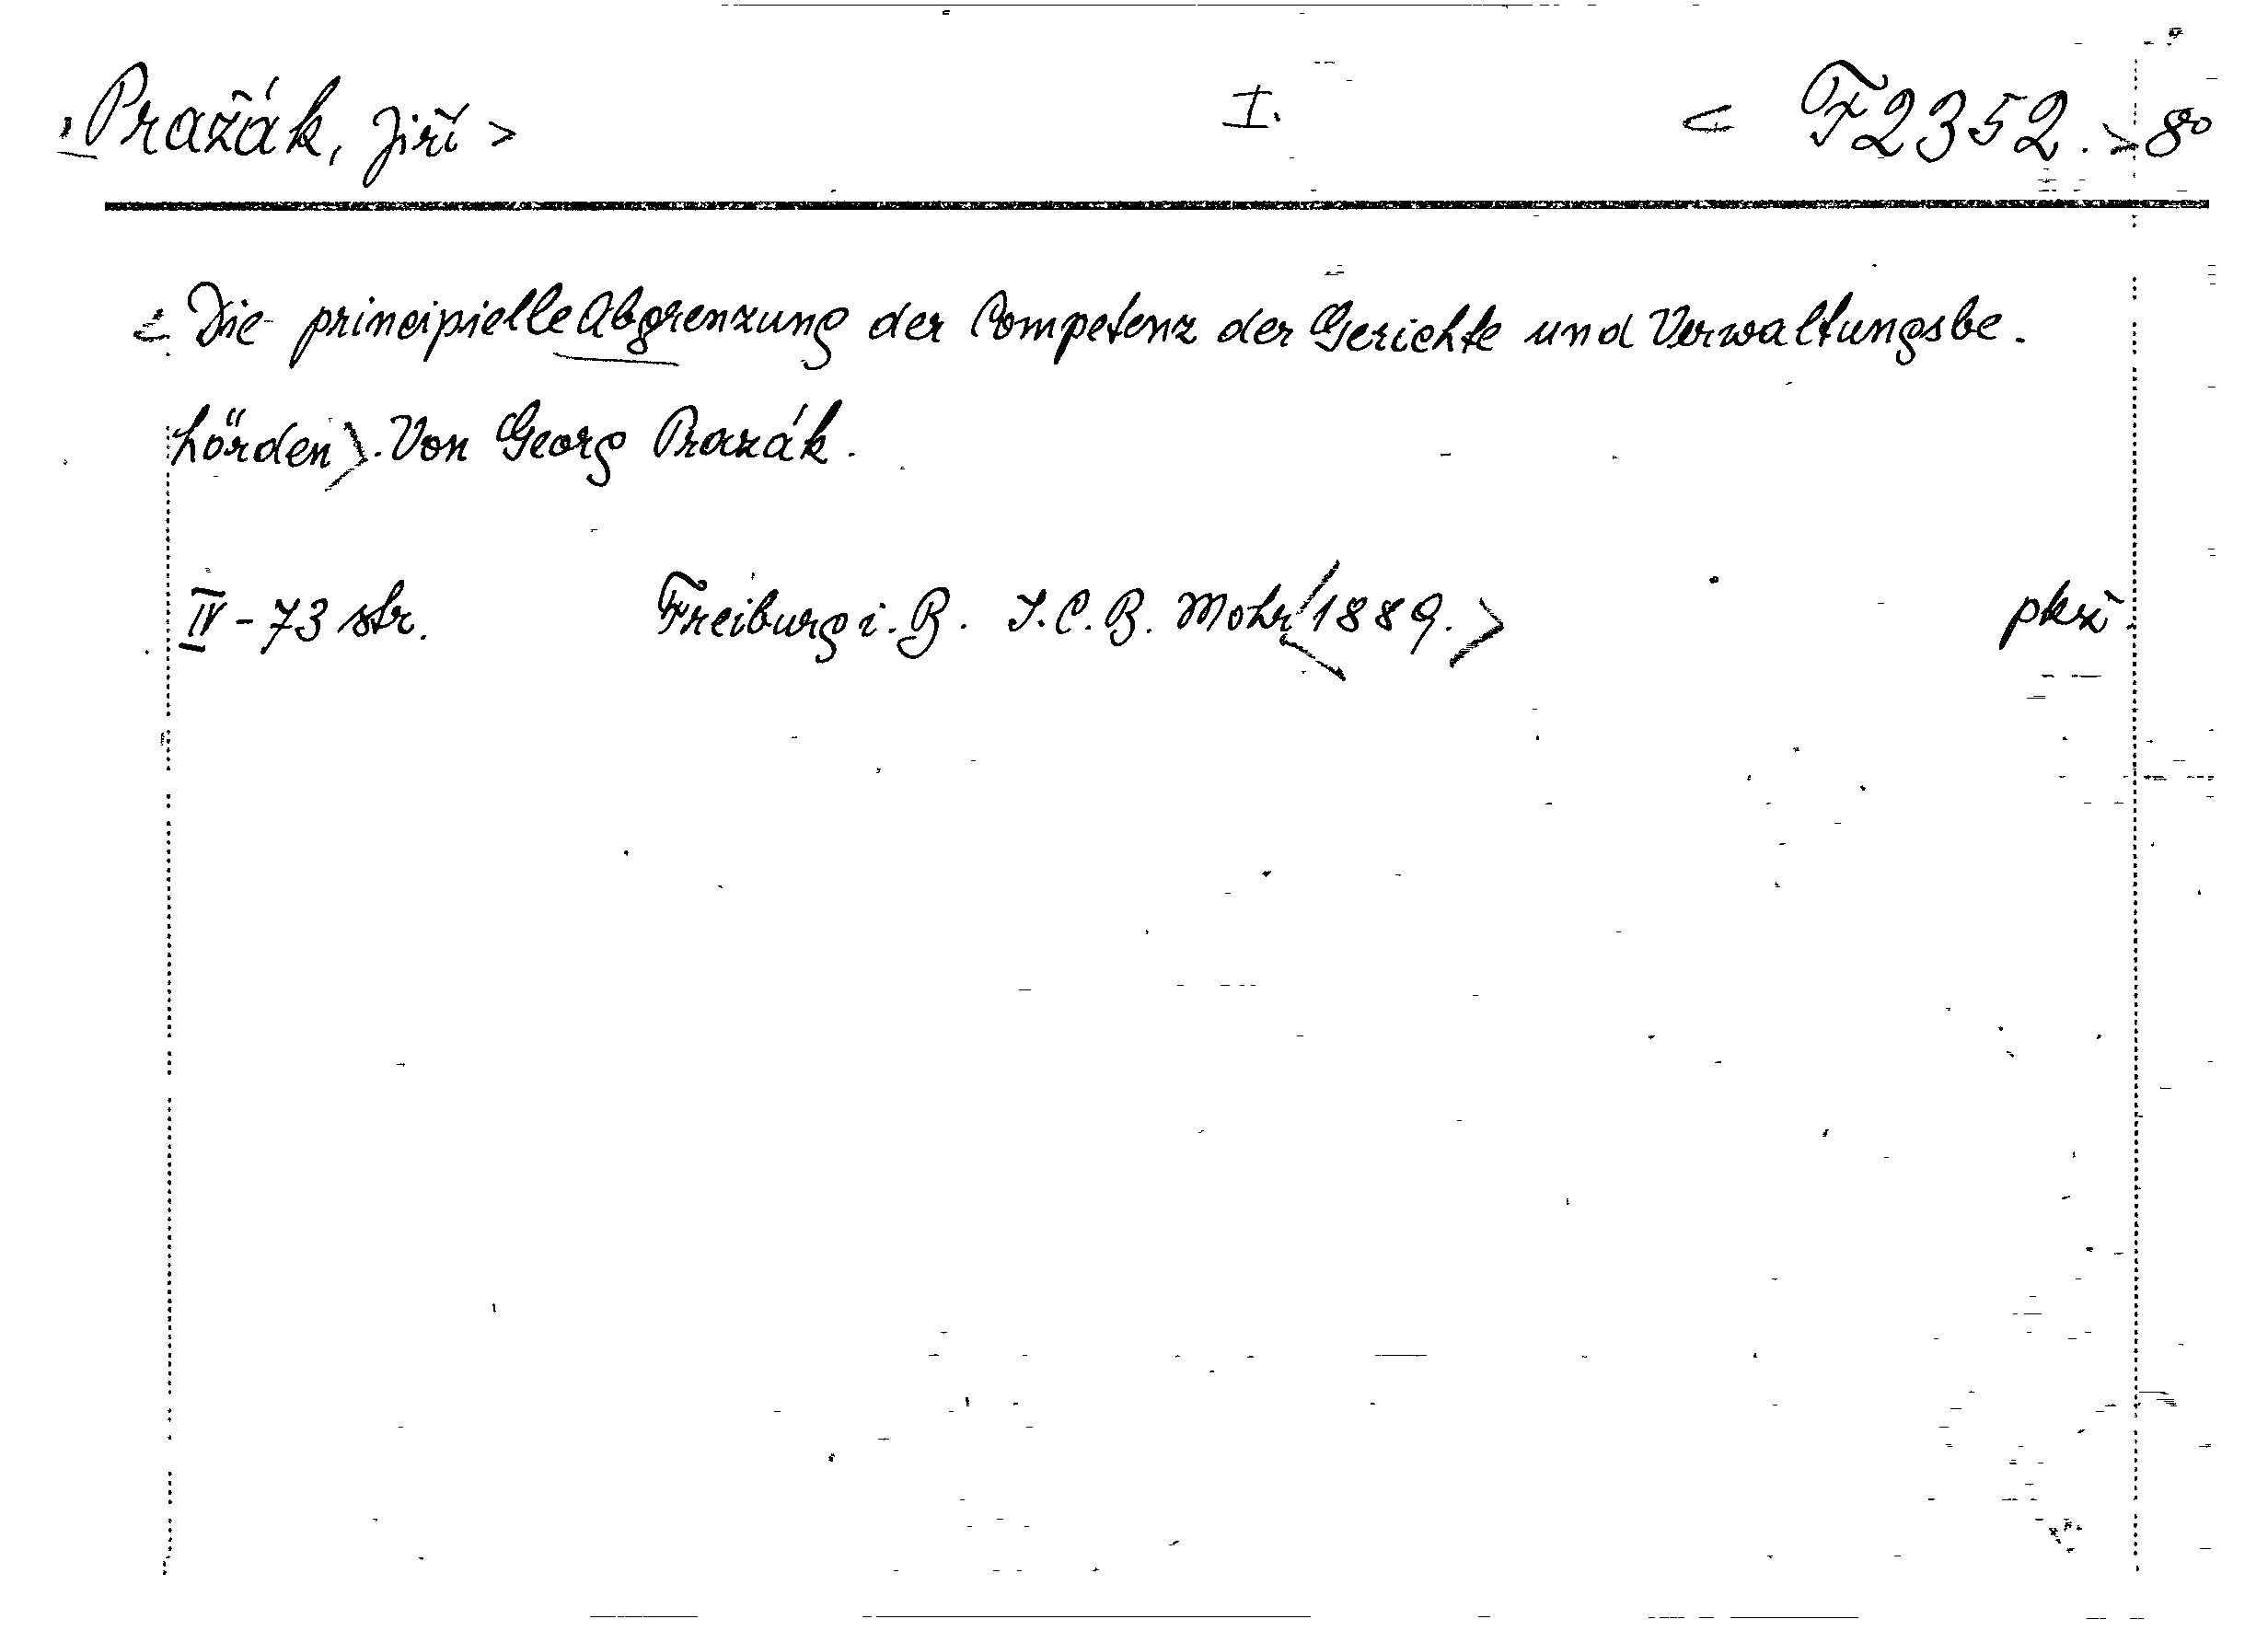 <Pražák, Jiří> I. <F2352.> 8°
<Die principielle Abgrenzung der Competenz der Gerichte und Verwaltungsbe-
hörden>. Von Georg Prazák.
IV - 73 str. Freiburg i. B. J. C. B. Mohr <1889.> pkž.